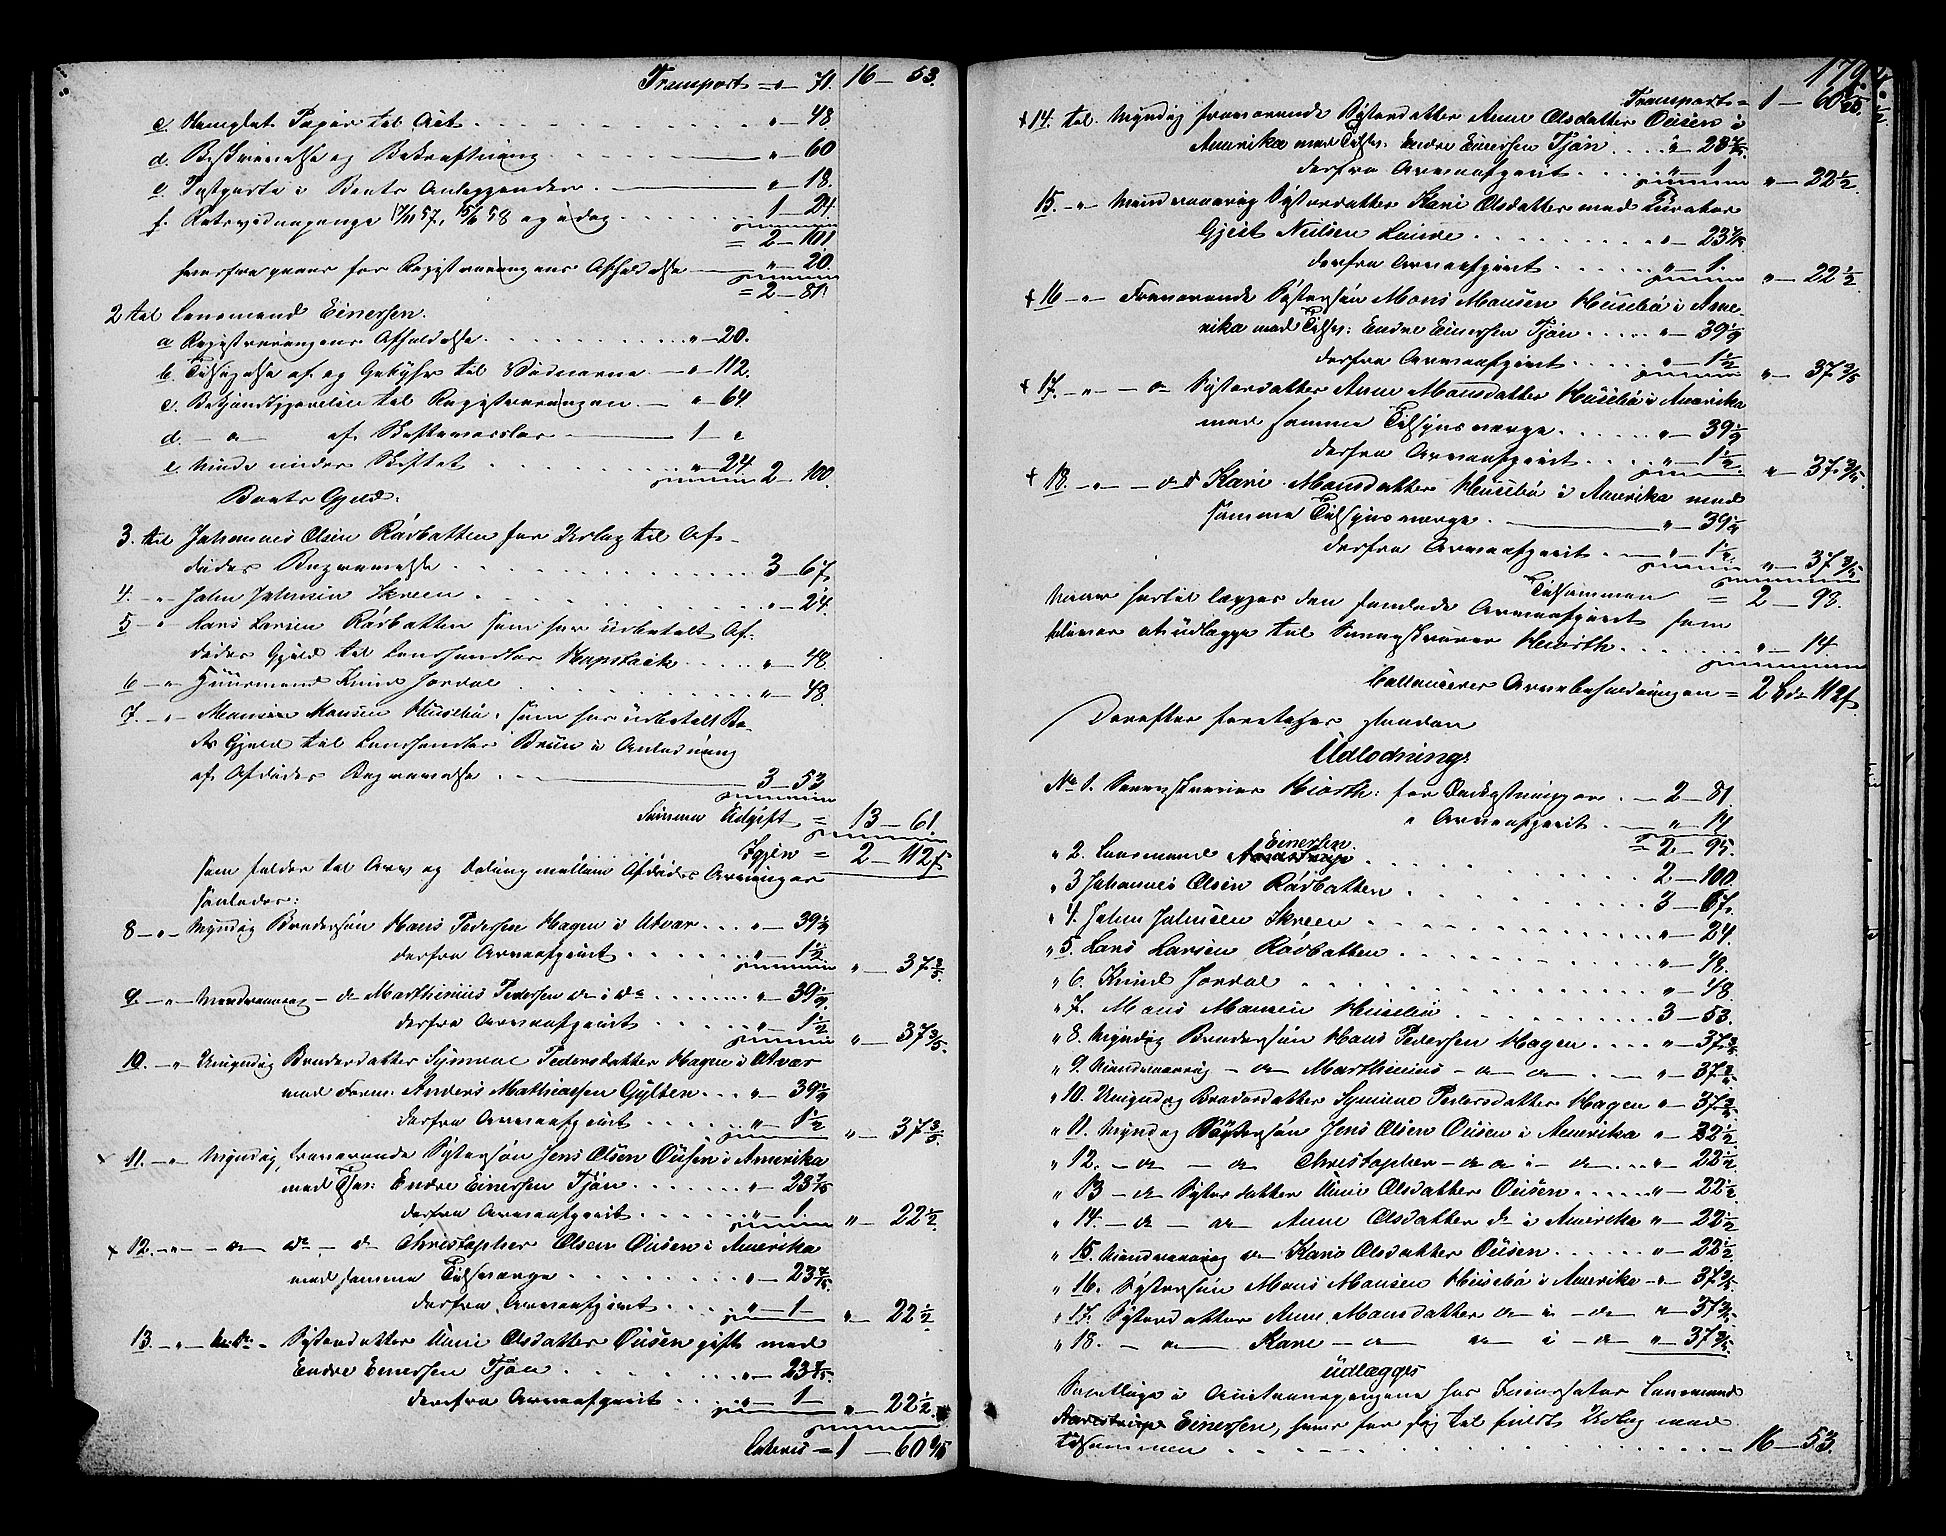 Transport = " - 71. 16 - 53.
c. Stemplet Papir til Act " - 48
d. Beskrivelse og Bekræftning " - 60
e. Postporto i Boets Anliggender " - 18.
f. Retsvidnepenge 57, 58 og idag 1 - 24.
= 2 - 101
for Registreringens Afholdelse " - 20.
= 2 - 81.
2 til Lensmand Einersen.
a Registreringens Afholdelse " - 20.
b. Tilsigelse af og Gebyhr til Vidnerne " - 112.
c. Bekjendtgjørelse til Registreringen " - 64
d. - " - af Skiftesamling 1 - "
e. under Skiftet " - 24 2 - 100.
Boets Gjeld.
3. til Johannes Olsen Rådbotten for Udlæg til Af-
dødes Begravelse 3 - 67.
4. - " John Johnsen Skreen " - 24.
5 - " Lars Larsen Rådbotten som har udbetalt Af-
dødes Gjeld til Landhandler " - 48.
6 - " Huusmand Knud Jordal " - 48.
7. - " Monsen Husebø, som har udbetalt Bo-
ets Gjeld til Landhandler Brun i Anledning
af Afdødes Begravelse 3 - 53
Summa Udgift = 13 - 61.
Igjen = 2 - 112 f
som falder til Arv og Deling mellem Afdødes Arvinger
saaledes:
8 - " - Myndig Brodersøn Hans Pedersen Hagen i Utvær " - 39 1/9
derfra Arveafgivt " - 1 1/2 " - 37 3/5.
9. - " - Mindreaarig - do Marthinius Pedersen do i do " - 39 1/9.
derfra Arveafgivt " - 1 1/2 " - 37 3/5.
10. - " Umyndig Broderdatter Synneve Pedersdatter Hagen i Utvær
med Form. Anders Mathiassen Gylten " - 39 1/9
derfra Arveafgivt " - 1 1/2 " - 37 3/5
11. - " Myndig, fraværende Søstersøn Jens Olsen Ousen i Amerika
med Tils: Endre Einersen Tjøn " - 23 7/15
derfra Arveafgivt " - 1 - " - 22 1/2.
12. - " - do do - do Christopher Olsen Ousen i Amerika
med samme Tilsværge " - 23 7/15.
derfra Arveafgivt " - 1 - " - 22 1/2.
13. - " - Søsterdatter Unni Olsdatter Ousen gift med
Endre Einersen Tjøn " - 23 7/15.
derfra Arveafgivt " - 1 - " - 22 1/2.
Lateris = 1 - 60
179.
Transport = 1 - 60
14. til Myndig fraværende Søsterdatter Anne Olsdatter Ousen i
Amerika med Tils: Endre Einersen Tjøn " - 23 7/15.
derfra Arveafgivt " - 1 " - 22 1/2.
15. - " Mindreaarig Søsterdatter Kari Olsdatter med Curator
Gjest Nielsen " - 23 7/15
derfra Arveafgivt " - 1 - " - 22 1/2.
16 - " Fraværende Søstersøn Mons Monsen Husebø i Ame-
rika med Tils: Endre Einersen Tjøn " - 39 1/9
derfra Arveafgivt " - 1 1/2 " - 37 3/5
17. - " - do Søsterdatter Anne Monsdatter Husebø i Amerika
med samme Tilsynsværge " - 39 1/9
derfra Arveafgivt " - 1 1/2. " - 37 3/5.
18. - " - do Kari Monsdatter Husebø i Amerika med
samme Tilsynsværge. " - 39 1/9
derfra Arveafgivt " - 1 1/2. " - 37 3/5
Tilsammen = 2 - 98.
Naar hertil lægges den samlede Arveafgivt som
bliver at udlægge til Sorenskriver Hiorth " - 14
balancerer Arvebeholdningen = 2 Spd. 112 f.
Derefter foretoges saadan
Udlodning:
No 1. Sorenskriver Hiorth: for 2 - 81
" Arveafgivt " - 14
= 2 - 95.
" 2. Lensmand Einersen 2 - 100.
" 3 Johannes Olsen Rådbotten 3 - 67.
" 4. John Johnsen Skreen " - 24.
" 5. Lars Larsen Rådbotten " - 48.
" 6. Knud Jordal " - 48
" 7. Mons Monsen Husebø 3 - 53.
" 8. Myndig Brodersøn Hans Pedersen Hagen " - 37 3/5.
" 9. Mindreaarig - do Marthinius - do do " - 37 3/5.
" 10. Umyndig Broderdatter Synneve Pedersdatter Hagen " - 37 3/5.
" 11. Myndig Søstersøn Jens Olsen Ousen i Amerika " - 22 1/2.
" 12. - do - do Christopher - do do i - do " - 22 1/2.
" 13 - do Søsterdatter Unni Olsdatter Ousen " - 22 1/2.
" 14. - do - do Anne Olsdatter do i Amerika " - 22 1/2
" 15. Mindreaarig do Kari Olsdatter Ousen " - 22 1/2
" 16. Søstersøn Mons Monsen Husebø i Amerika - " - 37 3/5.
" 17. Søsterdatter Anne Monsdatter do i - do " - 37 3/5.
" 18. - do Kari - do do i - do " - 37 3/5.
udlægges
Samtlige i Auctionspengene hos Lensmand
Einersen, som for sig til fuldt Udlæg med
tilsammen 16 - 53.